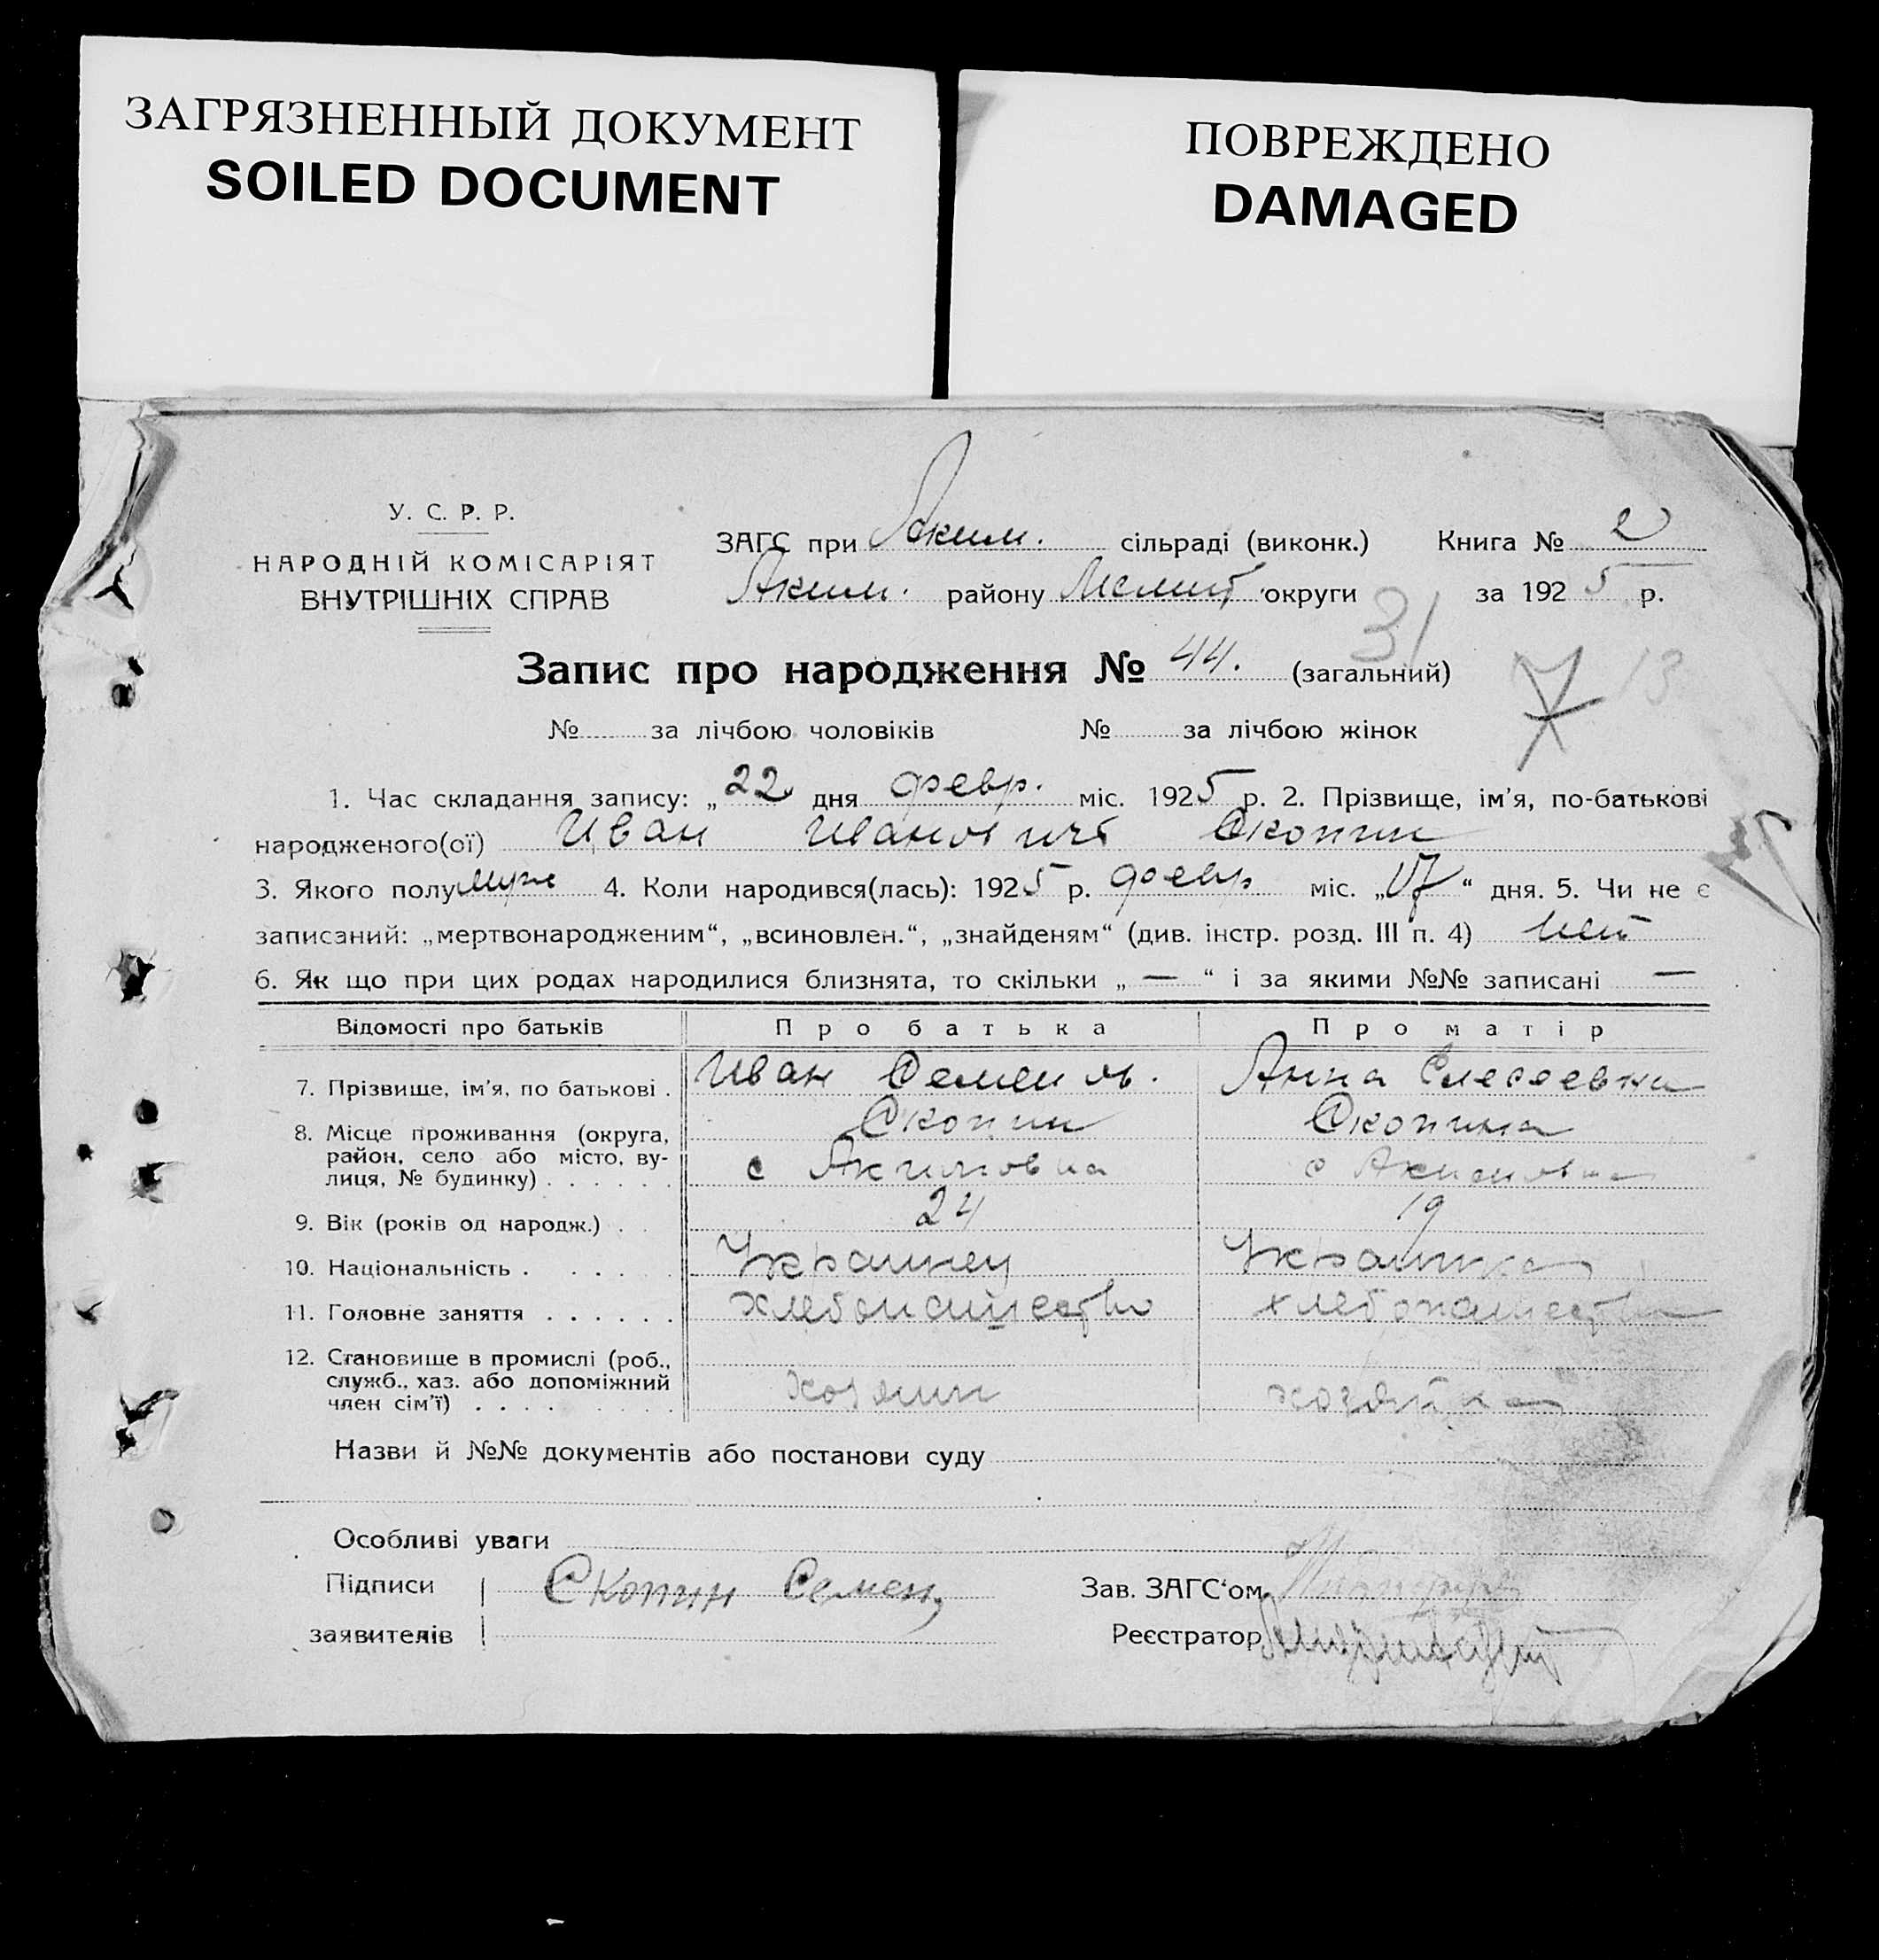 ЗАГРЯЗНЕННЫЙ ДОКУМЕНТ
SOILED DOCUMENT
ПОВРЕЖДЕНО
DAMAGED
У. С. Р. Р.
НАРОДНІЙ КОМІСАРІЯТ
ВНУТРІШНІХ СПРАВ
ЗАГС при Аким. сільраді (виконк.) Книга № 2
Аким. району Мелит округи за 1925 р.
31
Запис про народження № 44. (загальний)
13
№ за лічбою чоловіків № за лічбою жінок
1. Час складання запису: „22 дня февр. міс. 1925 р. 2. Прізвище, ім’я, по-батькові
народженого(ої) Иван Иванович Скопин
3. Якого полу муж 4. Коли народився(лась): 1925 р. февр міс. „17“ дня. 5. Чи не є
записаний: „мертвонародженим“, „всиновлен.“, „знайденям“ (див. інстр. розд. III п. 4) нет
6. Як що при цих родах народилися близнята, то скільки „ — “ і за якими №№ записані —
Відомості про батьків Про батька Про матір
7. Прізвище, ім’я, по батькові . Иван Семенов. Анна
Скопин Скопина
8. Місце проживання (округа, район, село або місто, ву-
лиця, № будинку) . . . . . . с Акимовка с Акимовка
9. Вік (років од народж.) . 24 19
10. Національність . . . . Украинец Украинка
11. Головне заняття . . . . . . хлебопашество хлебопашество
12. Становище в промислі (роб.,
служб., хаз. або допоміжний
член сім’ї) . . . . хозяин хозяйка
Назви й №№ документів або постанови суду
Особливі уваги
Підписи Скопин Семен
заявителів
Зав. ЗАГС‘ом
Реєстратор